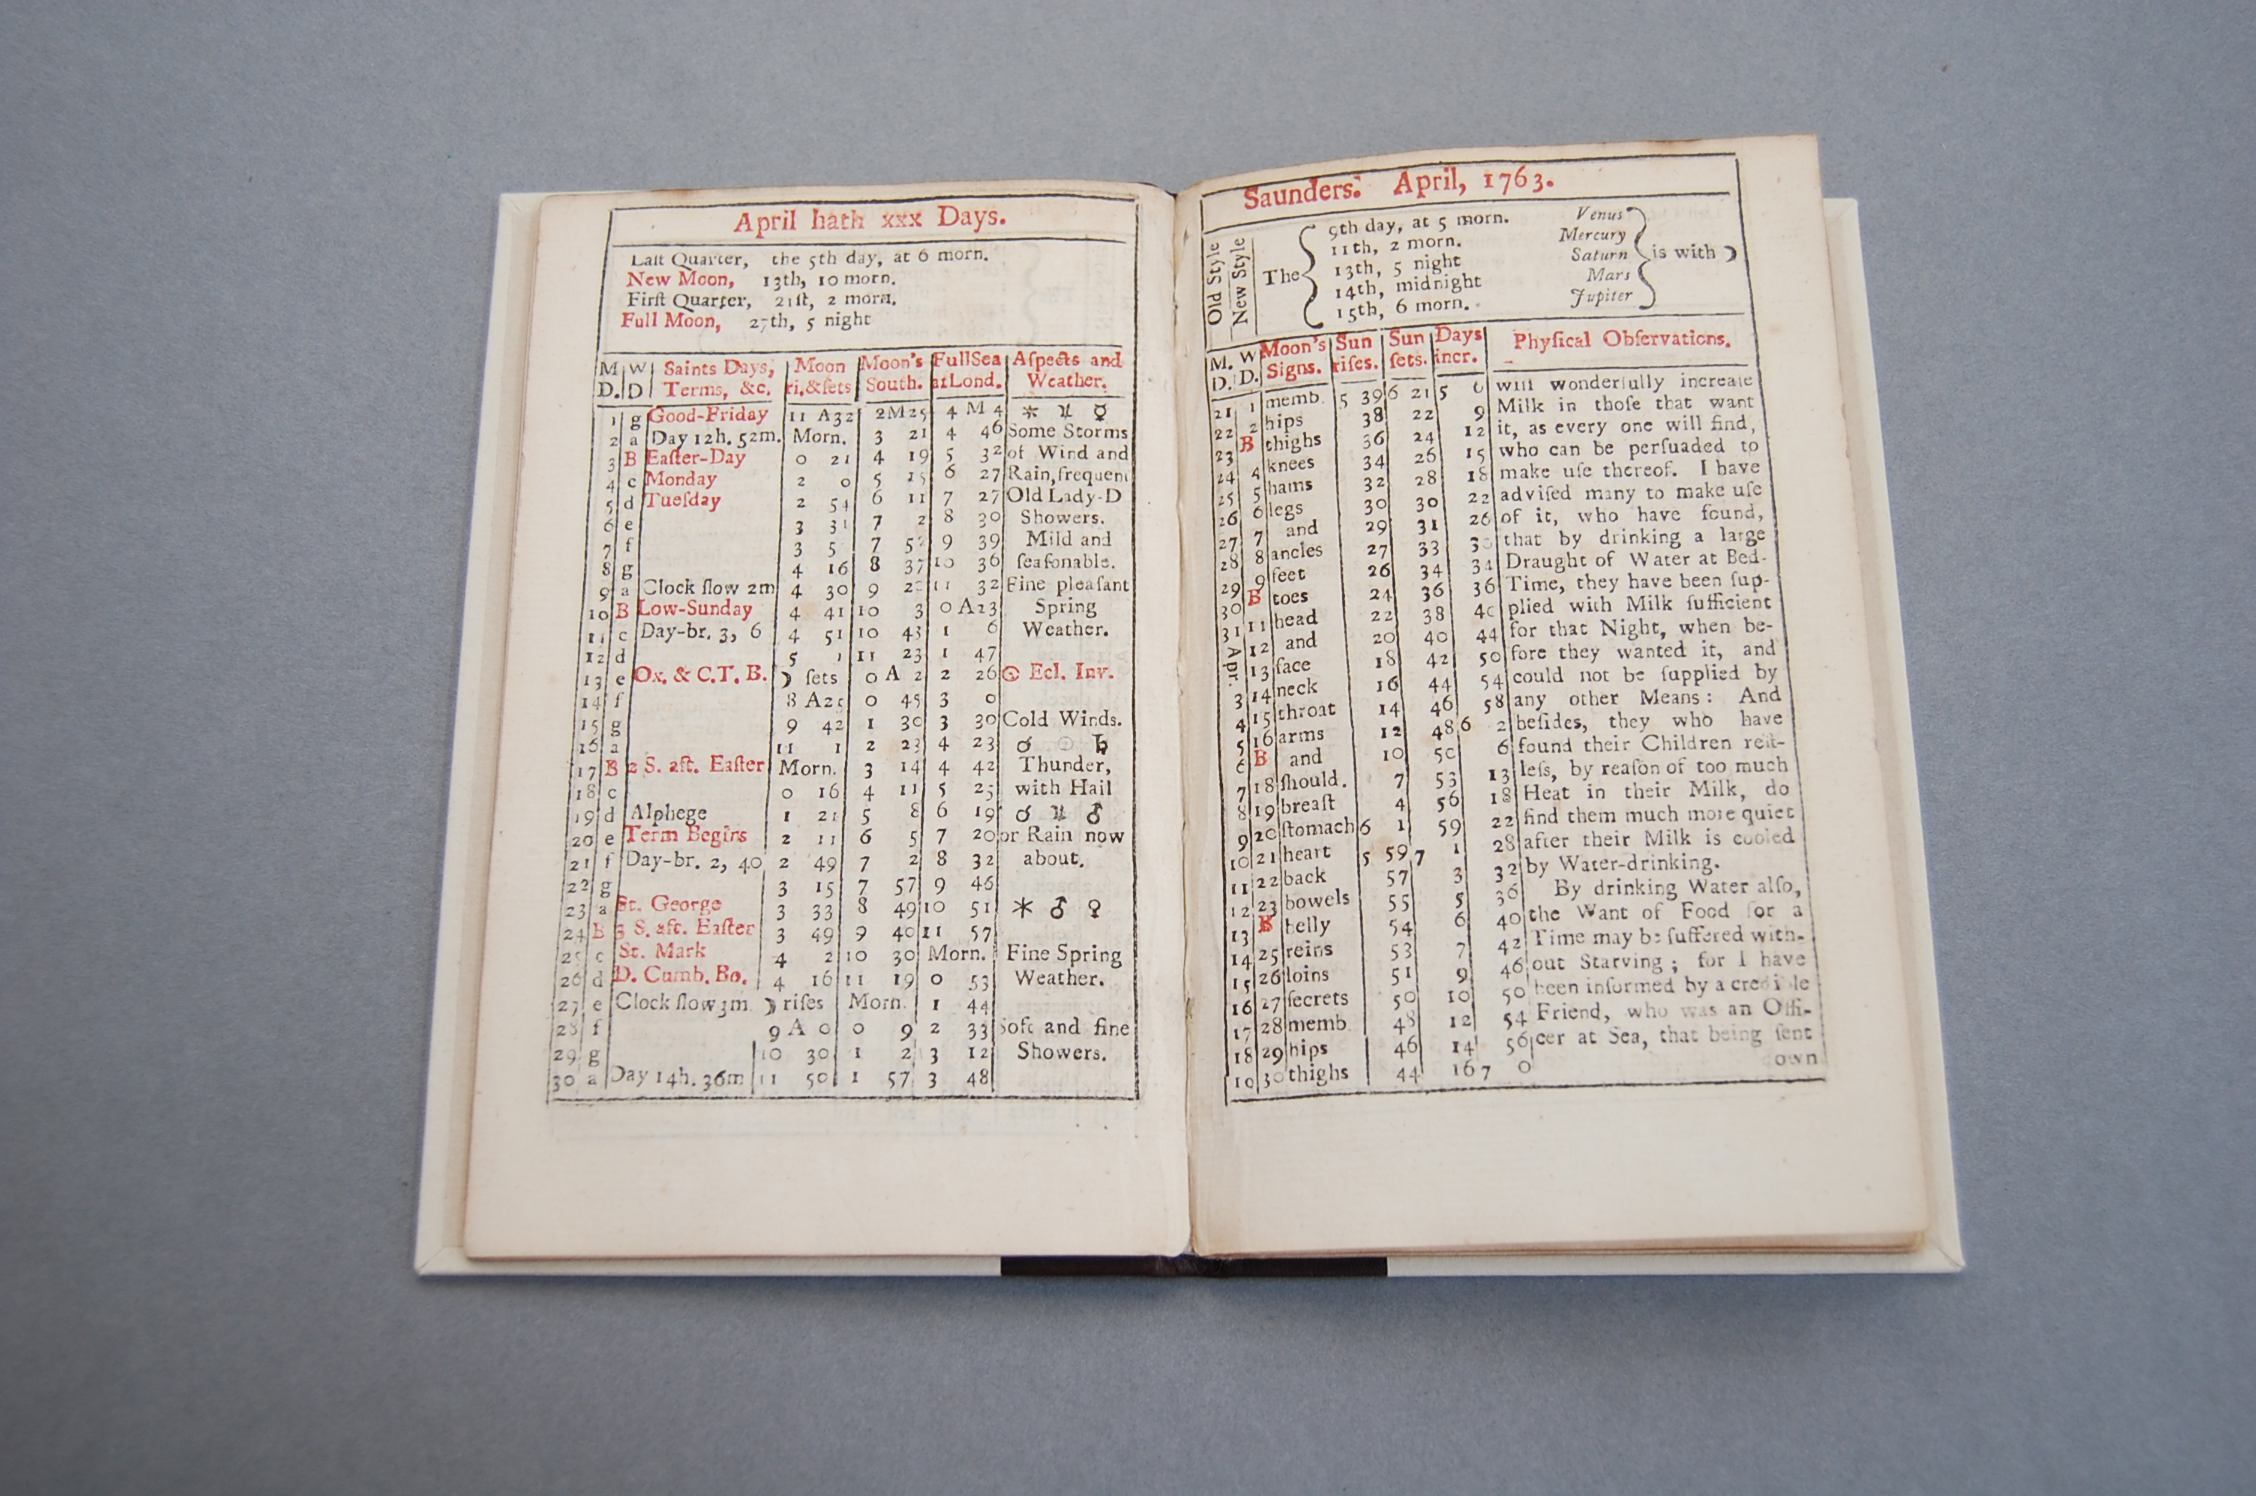 April hath xxx Days.
Laſt Quarter, the 5th day, at 6 morn.
New Moon, 13th, 10 morn.
Firſt Quarter, 21ſt, 2 morn.
Full Moon, 27th, 5 night
M W Saints Days, Moon Moon's Full Sea Aſpects and
D. D Terms, &c. ri.&ſets South. at Lond. Weather.
1 g Good-Friday 11 A32 2M25 4 M 4 ⚹ ♃ ☿
2 a Day 12h. 52m. Morn. 3 21 4 46 Some Storms
3 B Eaſter-Day 0 21 4 19 5 32 of Wind and
4 c Monday 2 0 5 15 6 27 Rain, frequent
5 d Tueſday 2 54 6 11 7 27 Old Lady-D
6 e 3 31 7 2 8 30 Showers.
7 f 3 5 7 5 9 39 Mild and
8 g 4 16 8 37 10 36 ſeaſonable.
9 a Clock ſlow 2m 4 30 9 2 11 32 Fine pleaſant
10 B Low-Sunday 4 41 10 3 0 A23 Spring
11 c Day-br. 3, 6 4 51 10 43 1 6 Weather.
12 d 5 1 11 23 1 47
13 e Ox. & C.T. B. ☽ ſets 0 A 2 2 26 ☉ Ecl. Inv.
14 f 8 A25 0 45 3 0
15 g 9 42 1 30 3 30 Cold Winds.
16 a 11 1 2 23 4 23 ☌ ☉ ♄
17 B 2 S. aft. Eaſter Morn. 3 14 4 42 Thunder,
18 c 0 16 4 11 5 25 with Hail
19 d Alphege 1 21 5 8 6 19 ☌ ♃ ♂
20 e Term Begins 2 11 6 5 7 20 or Rain now
21 f Day-br. 2, 40 2 49 7 2 8 32 about.
22 g 3 15 7 57 9 46
23 a St. George 3 33 8 49 10 51 ⚹ ♂ ♀
24 B 3 S. aft. Eaſter 3 49 9 40 11 57
25 c St. Mark 4 2 10 30 Morn. Fine Spring
26 d D. Cumb. Bo. 4 16 11 19 0 53 Weather.
27 e Clock ſlow 3m ☽ riſes Morn. 1 44
28 f 9 A 0 0 9 2 33 Soft and fine
29 g 10 30 1 2 3 12 Showers.
30 a Day 14h. 36m 11 50 1 57 3 48
Saunders: April, 1763.
Old Style
New Style
The
9th day, at 5 morn. Venus
11th, 2 morn. Mercury
13th, 5 night Saturn is with ☽
14th, midnight Mars
15th, 6 morn. Jupiter
M. W Moon's Sun Sun Days Phyſical Obſervations.
D. D. Signs. riſes. ſets. incr.
21 1 memb. 5 39 6 21 5 6 will wonderfully increaſe
22 2 hips 38 22 9 Milk in thoſe that want
23 B thighs 36 24 12 it, as every one will find,
24 4 knees 34 26 15 who can be perſuaded to
25 5 hams 32 28 18 make uſe thereof. I have
26 6 legs 30 30 22 adviſed many to make uſe
27 7 and 29 31 26 of it, who have found,
28 8 ancles 27 33 30 that by drinking a large
29 9 feet 26 34 34 Draught of Water at Bed-
30 B toes 24 36 36 Time, they have been ſup-
31 11 head 22 38 40 plied with Milk ſufficient
Apr. 12 and 20 40 44 for that Night, when be-
13 face 18 42 50 fore they wanted it, and
3 14 neck 16 44 54 could not be ſupplied by
4 15 throat 14 46 58 any other Means: And
5 16 arms 12 48 6 2 beſides, they who have
6 B and 10 50 6 found their Children reſt-
7 18 ſhould. 7 53 13 leſs, by reaſon of too much
8 19 breaſt 4 56 18 Heat in their Milk, do
9 20 ſtomach 6 1 59 22 find them much more quiet
10 21 heart 5 59 7 1 28 after their Milk is cooled
11 22 back 57 3 32 by Water-drinking.
12 23 bowels 55 5 36 By drinking Water alſo,
13 B belly 54 6 40 the Want of Food for a
14 25 reins 53 7 42 Time may be ſuffered with-
15 26 loins 51 9 46 out Starving; for I have
16 27 ſecrets 50 10 50 been informed by a credible
17 28 memb. 48 12 54 Friend, who was an Offi-
18 29 hips 46 14 56 cer at Sea, that being ſent
19 30 thighs 44 16 7 0 own